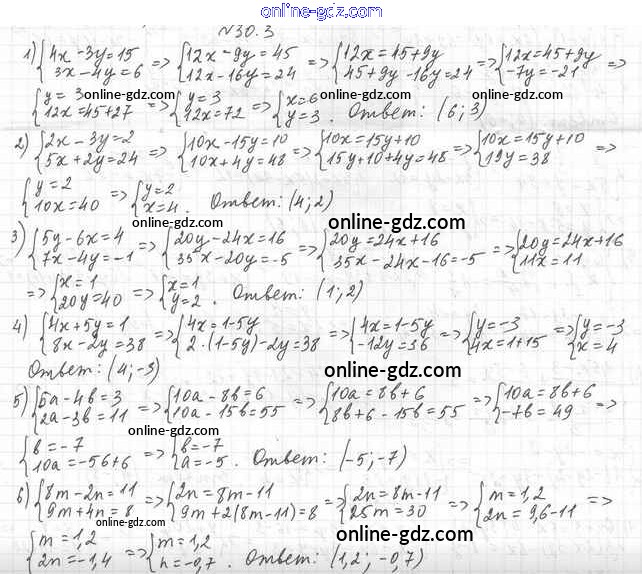 online-gdz.com
№30.3
1) {4x - 3y = 15 {3x - 4y = 6 => {12x - 9y = 45 {12x - 16y = 24 => {12x = 45 + 9y {45 + 9y - 16y = 24 => {12x = 45 + 9y {-7y = -21 =>
online-gdz.com online-gdz.com online-gdz.com
{y = 3 {12x = 45 + 27 => {y = 3 {12x = 72 => {x = 6 {y = 3. Ответ: (6; 3)
2) {2x - 3y = 2 {5x + 2y = 24 => {10x - 15y = 10 {10x + 4y = 48 => {10x = 15y + 10 {15y + 10 + 4y = 48 => {10x = 15y + 10 {19y = 38 =>
{y = 2 {10x = 40 => {y = 2 {x = 4. Ответ: (4; 2)
online-gdz.com
3) {5y - 6x = 4 {7x - 4y = -1 => {20y - 24x = 16 {35x - 20y = -5 => {20y = 24x + 16 {35x - 24x - 16 = -5 => {20y = 24x + 16 {11x = 11
online-gdz.com
=> {x = 1 {20y = 40 => {x = 1 {y = 2. Ответ: (1; 2)
4) {4x + 5y = 1 {8x - 2y = 38 => {4x = 1 - 5y {2·(1 - 5y) - 2y = 38 => {4x = 1 - 5y {-12y = 36 => {y = -3 {4x = 1 + 15 => {y = -3 {x = 4
Ответ: (4; -3)
online-gdz.com
5) {5a - 4b = 3 {2a - 3b = 11 => {10a - 8b = 6 {10a - 15b = 55 => {10a = 8b + 6 {8b + 6 - 15b = 55 => {10a = 8b + 6 {-7b = 49 =>
online-gdz.com
{b = -7 {10a = -56 + 6 => {b = -7 {a = -5. Ответ: (-5; -7)
online-gdz.com
6) {8m - 2n = 11 {9m + 4n = 8 => {2n = 8m - 11 {9m + 2(8m - 11) = 8 => {2n = 8m - 11 {25m = 30 => {m = 1,2 {2n = 9,6 - 11 =>
online-gdz.com
online-gdz.com
{m = 1,2 {2n = -1,4 => {m = 1,2 {n = -0,7. Ответ: (1,2; -0,7)